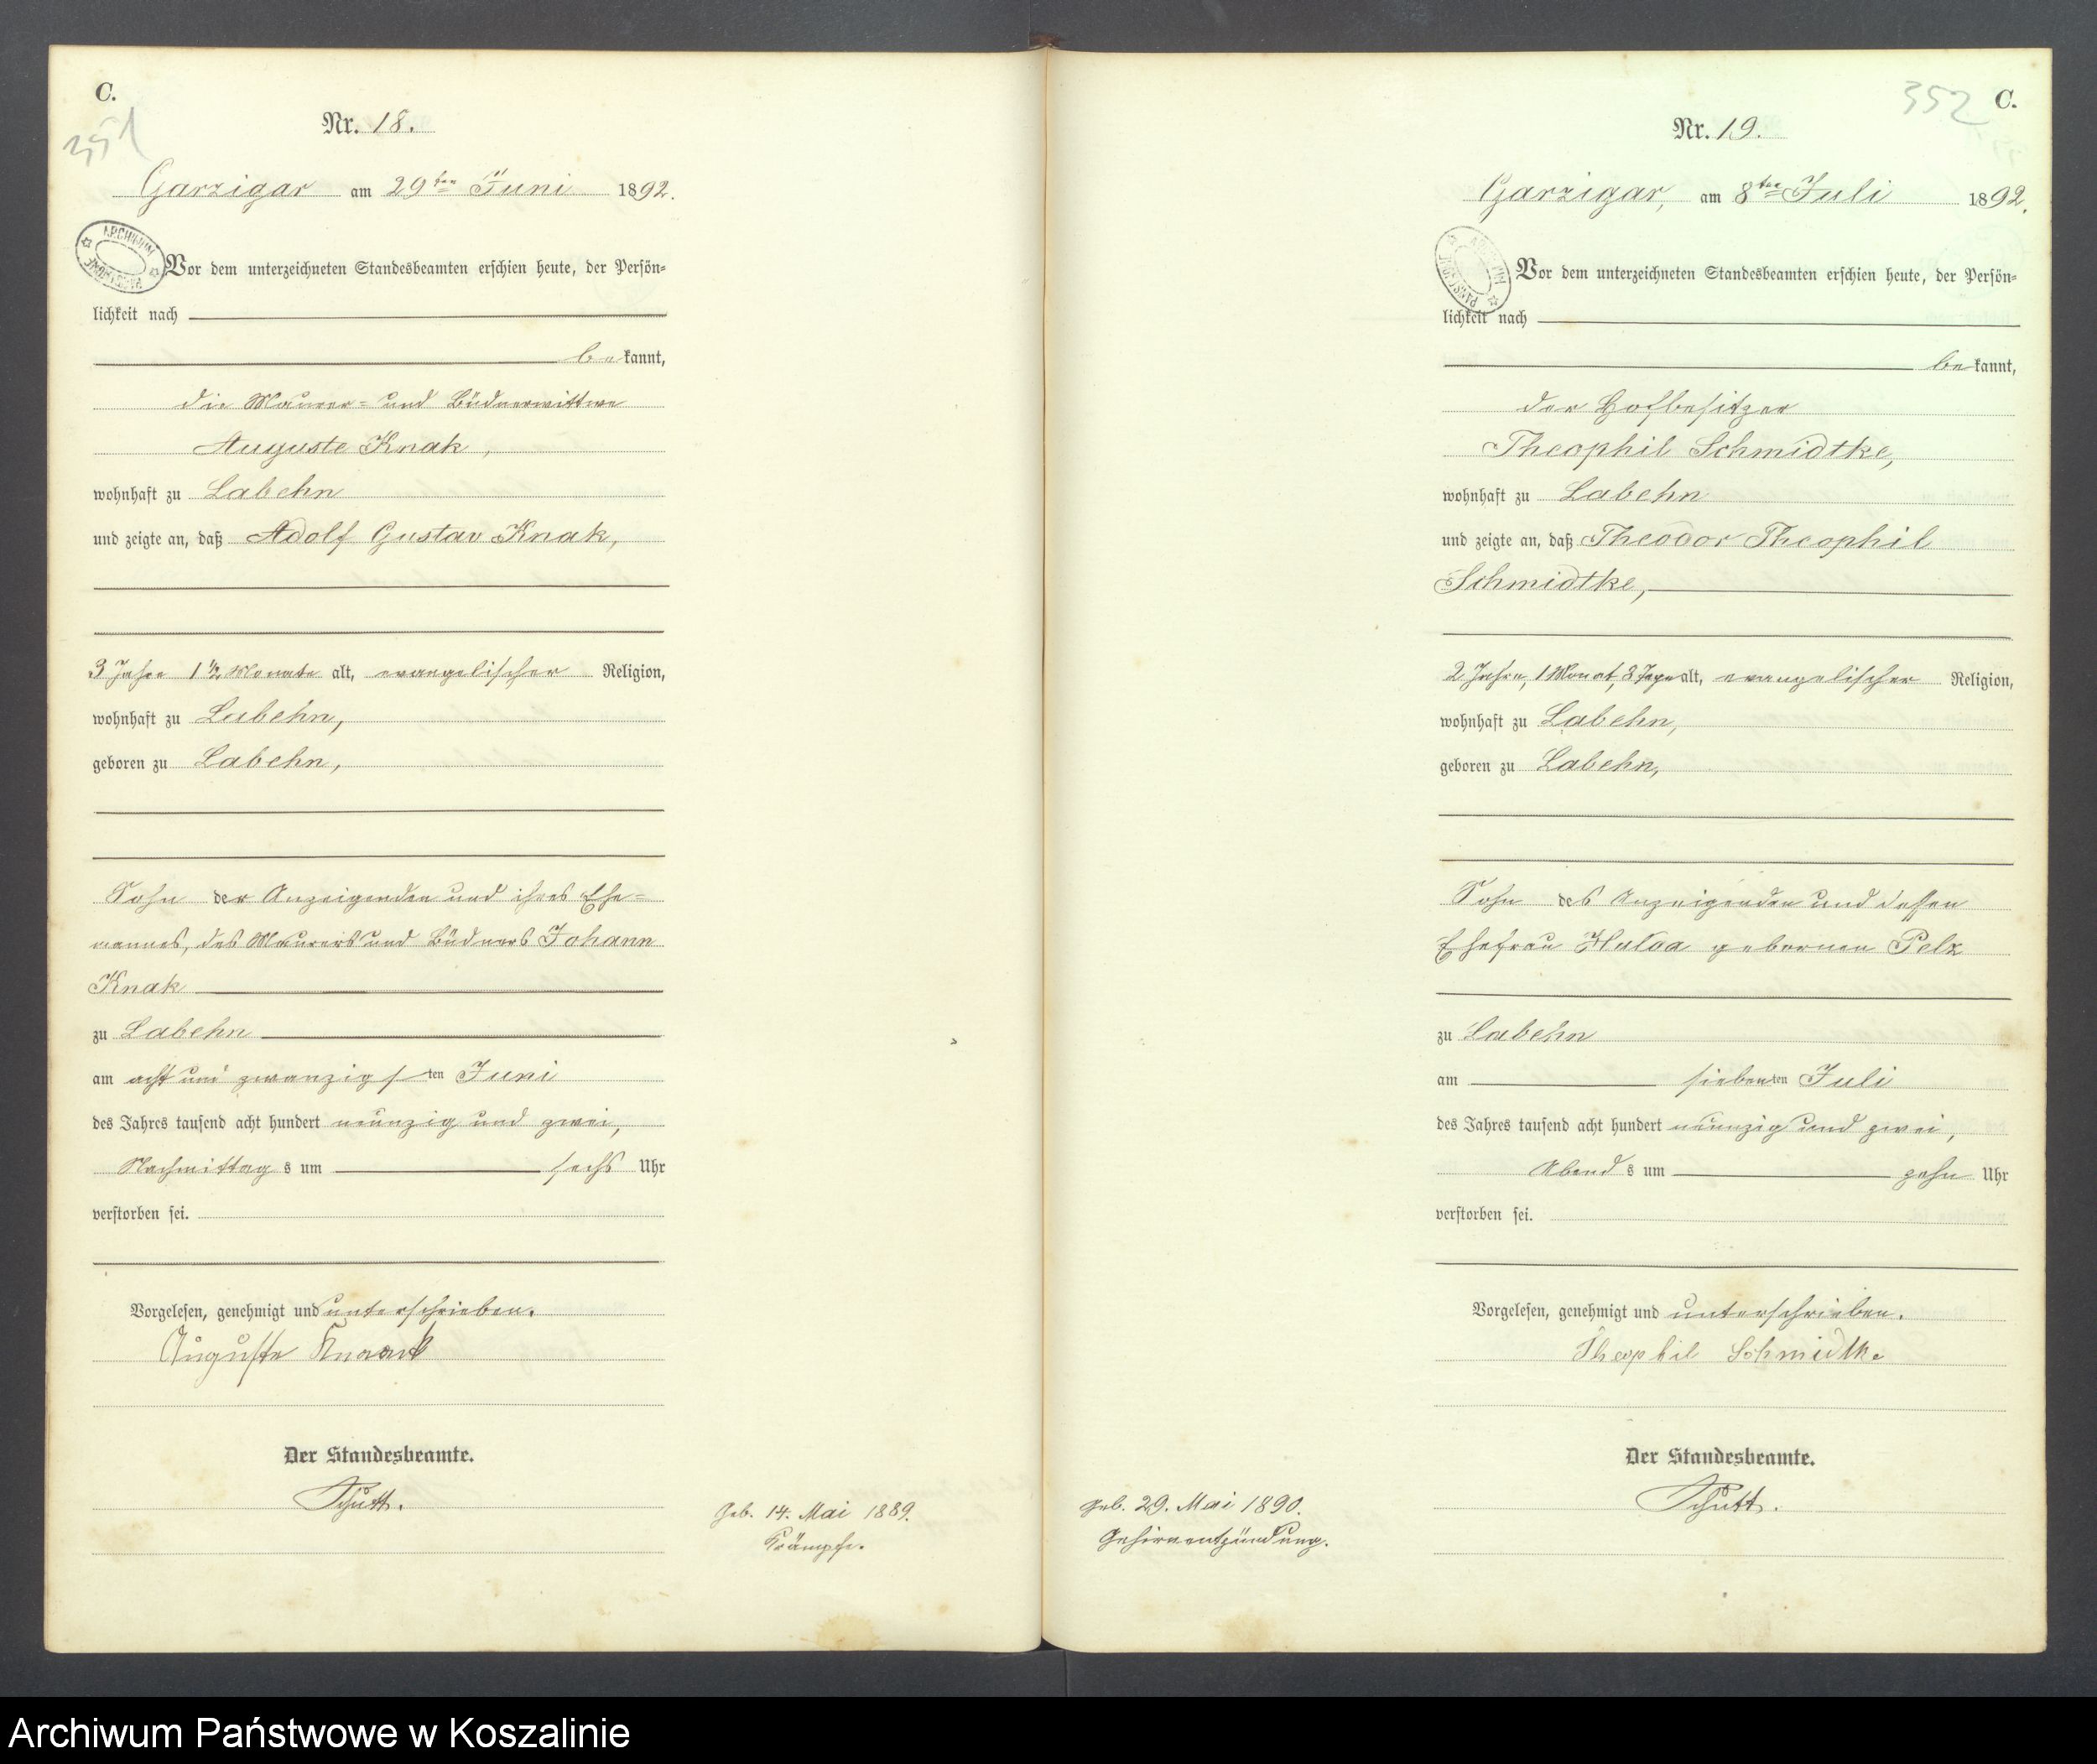 C.
351
Nr. 18.
Garzigar am 29ten Juni 1892.
ARCHIWUM PAŃSTWOWE
Vor dem unterzeichneten Standesbeamten erschien heute, der Persön-
lichkeit nach
be kannt,
die Maurer- und Büdnerwittwe
Auguste Knak,
wohnhaft zu Labehn
und zeigte an, daß Adolf Gustav Knak,
3 Jahre 1 1/2 Monate alt, evangelischer Religion,
wohnhaft zu Labehn,
geboren zu Labehn,
Sohn der Anzeigenden und ihres Ehe-
mannes, des Maurers und Büdners Johann
Knak
zu Labehn
am acht und zwanzigsten Juni
des Jahres tausend acht hundert neunzig und zwei,
Nachmittags um sechs Uhr
verstorben sei.
Vorgelesen, genehmigt und unterschrieben.
Auguste Knaak
Der Standesbeamte.
Schütt.
Geb. 14. Mai 1889.
Krämpfe.
352
C.
Nr. 19.
Garzigar, am 8ten Juli 1892.
ARCHIWUM PAŃSTWOWE
Vor dem unterzeichneten Standesbeamten erschien heute, der Persön-
lichkeit nach
be kannt,
der Hofbesitzer
Theophil Schmidtke,
wohnhaft zu Labehn
und zeigte an, daß Theodor Theophil
Schmidtke,
2 Jahre, 1 Monat, 8 Tage alt, evangelischer Religion,
wohnhaft zu Labehn,
geboren zu Labehn,
Sohn des Anzeigenden und dessen
Ehefrau Hulda gebornen Pelz
zu Labehn
am siebenten Juli
des Jahres tausend acht hundert neunzig und zwei,
Abends um zehn Uhr
verstorben sei.
Vorgelesen, genehmigt und unterschrieben.
Theophil Schmidtke
Der Standesbeamte.
Schütt.
Geb. 29. Mai 1890.
Gehirnentzündung.
Archiwum Państwowe w Koszalinie